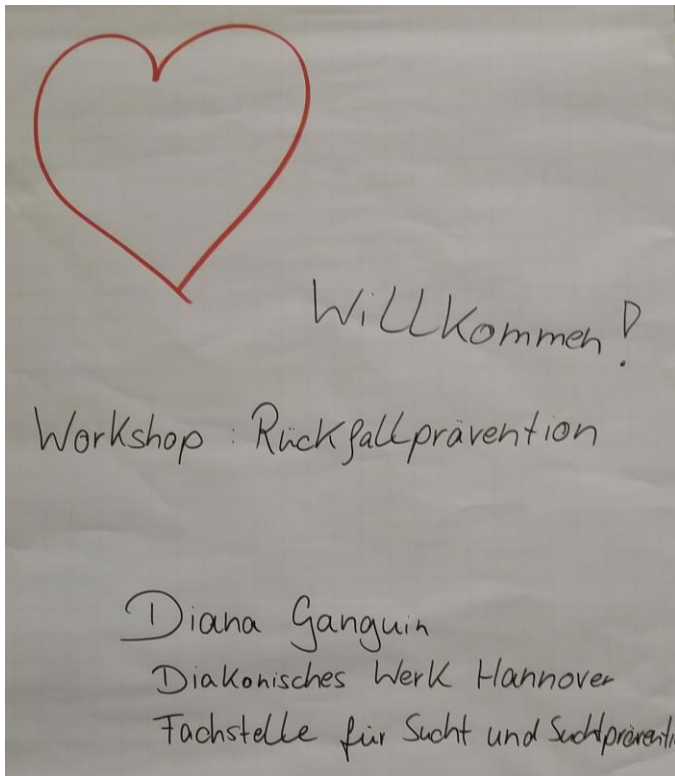 Willkommen!
Workshop: Rückfallprävention
Diana Ganguin
Diakonisches Werk Hannover
Fachstelle für Sucht und Suchtpräventi